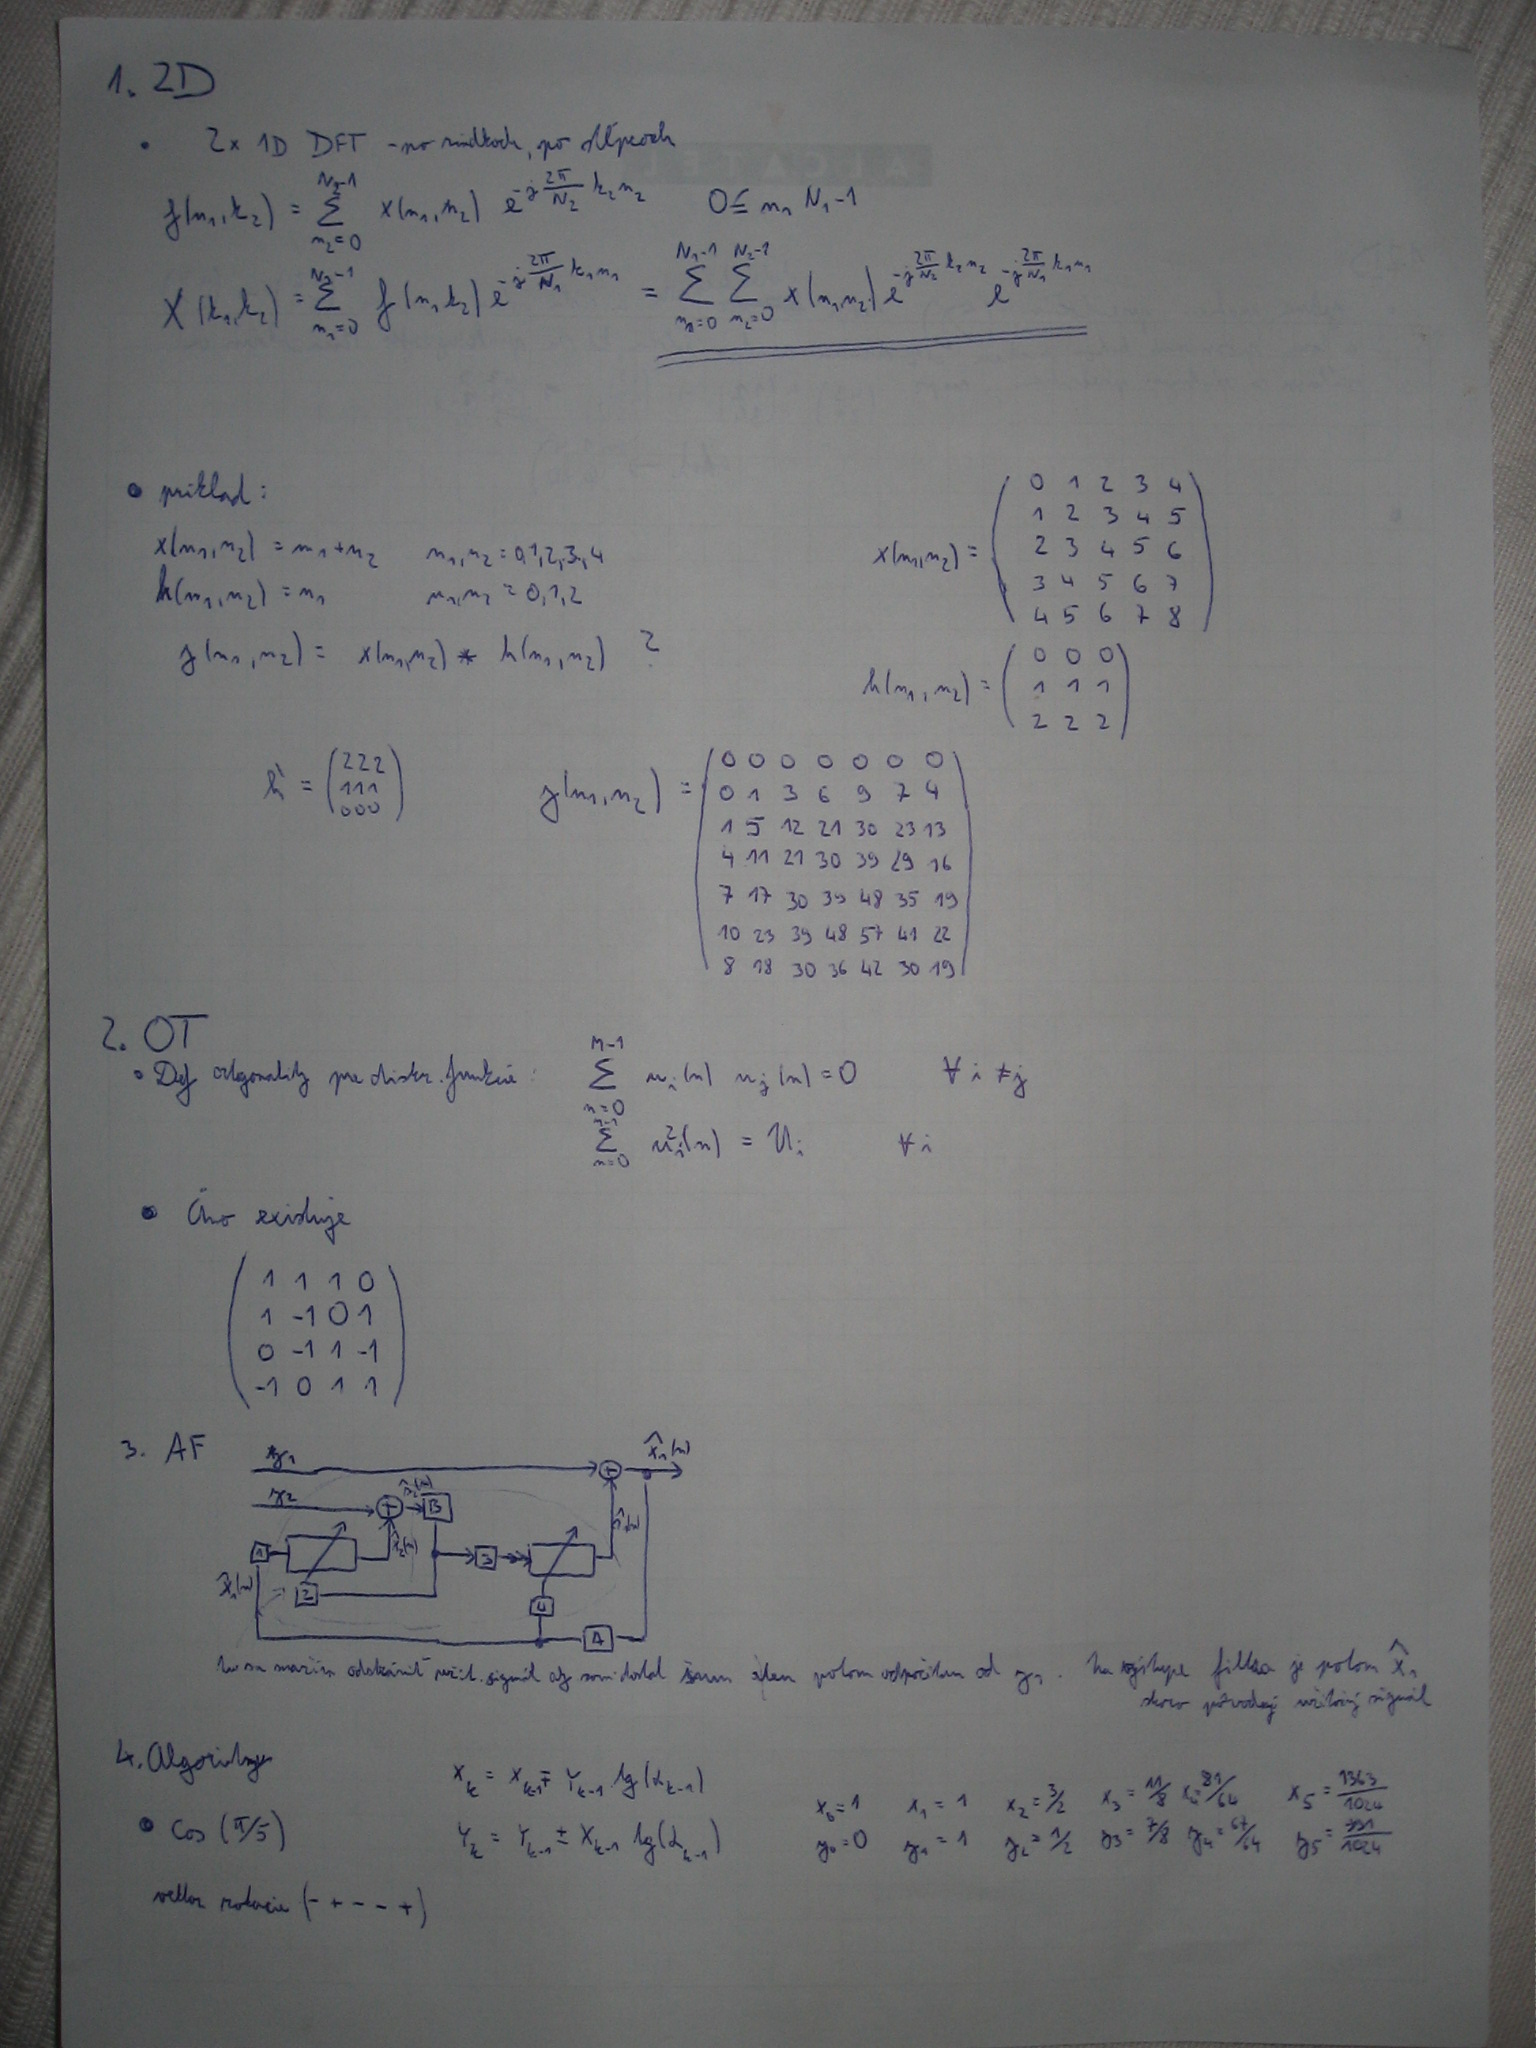 1. 2D
• 2x 1D DFT - po riadkoch, po stĺpcoch
f(n₁,k₂) = Σ_{n₂=0}^{N₂-1} x(n₁,n₂) e^{-j 2π/N₂ k₂n₂} 0≤ n₁ N₁-1
X(k₁,k₂) = Σ_{n₁=0}^{N₁-1} f(n₁k₂) e^{-j 2π/N₁ k₁n₁} = Σ_{n₁=0}^{N₁-1} Σ_{n₂=0}^{N₂-1} x(n₁n₂) e^{-j 2π/N₂ k₂n₂} e^{-j 2π/N₁ k₁n₁}
• priklad :
x(n₁,n₂) = n₁+n₂ n₁,n₂ = 0,1,2,3,4
h(n₁,n₂) = n₁ n₁,n₂ = 0,1,2
y(n₁,n₂) = x(n₁,n₂) * h(n₁,n₂) ?
x(n₁,n₂) =
0 1 2 3 4
1 2 3 4 5
2 3 4 5 6
3 4 5 6 7
4 5 6 7 8
h(n₁,n₂) =
0 0 0
1 1 1
2 2 2
h' =
2 2 2
1 1 1
0 0 0
y(n₁,n₂) =
0 0 0 0 0 0 0
0 1 3 6 9 7 4
1 5 12 21 30 23 13
4 11 21 30 39 29 16
7 17 30 39 48 35 19
10 23 39 48 57 41 22
8 18 30 36 42 30 19
2. OT
• Def ortgonality pre diskr. funkcie : Σ_{n=0}^{M-1} u_i(n) u_j(n) = 0 ∀ i ≠ j
Σ_{n=0}^{M-1} u_i²(n) = U_i ∀ i
• Áno existuje
1 1 1 0
1 -1 0 1
0 -1 1 -1
-1 0 1 1
3. AF
y₁
x̂₁(n)
y₂
n̂₂(n)
B
x̂₂(n)
n̂₁(n)
1
3
x̂₁(n)
2
4
A
tu sa odstrániť užit. signál aby som dostal šum potom odpočítam od y₁. na výstupe filtra je potom x̂₁
skoro pôvodný užitočný signál
4. Algoritmy
X_k = X_{k-1} ∓ Y_{k-1} tg(α_{k-1})
x₀=1 x₁=1 x₂=3/2 x₃=11/8 x₄=81/64 x₅=1363/1024
• cos (π/5)
Y_k = Y_{k-1} ± X_{k-1} tg(α_{k-1})
y₀=0 y₁=1 y₂=1/2 y₃=7/8 y₄=67/64
vektor rotacie (- + - - +)